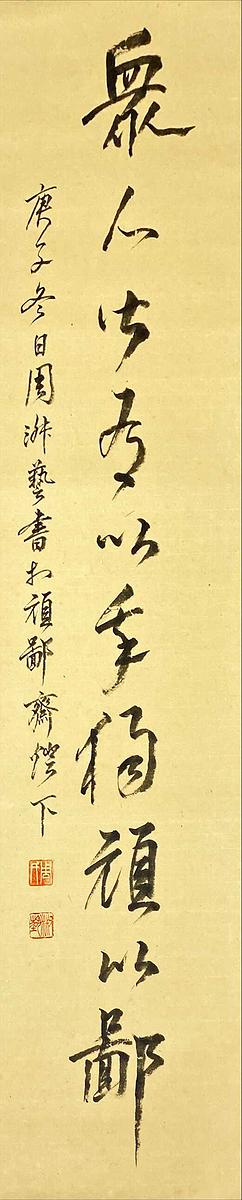 眾人皆有以我獨頑以鄙
庚子冬日周藝書於頑鄙齋燈下